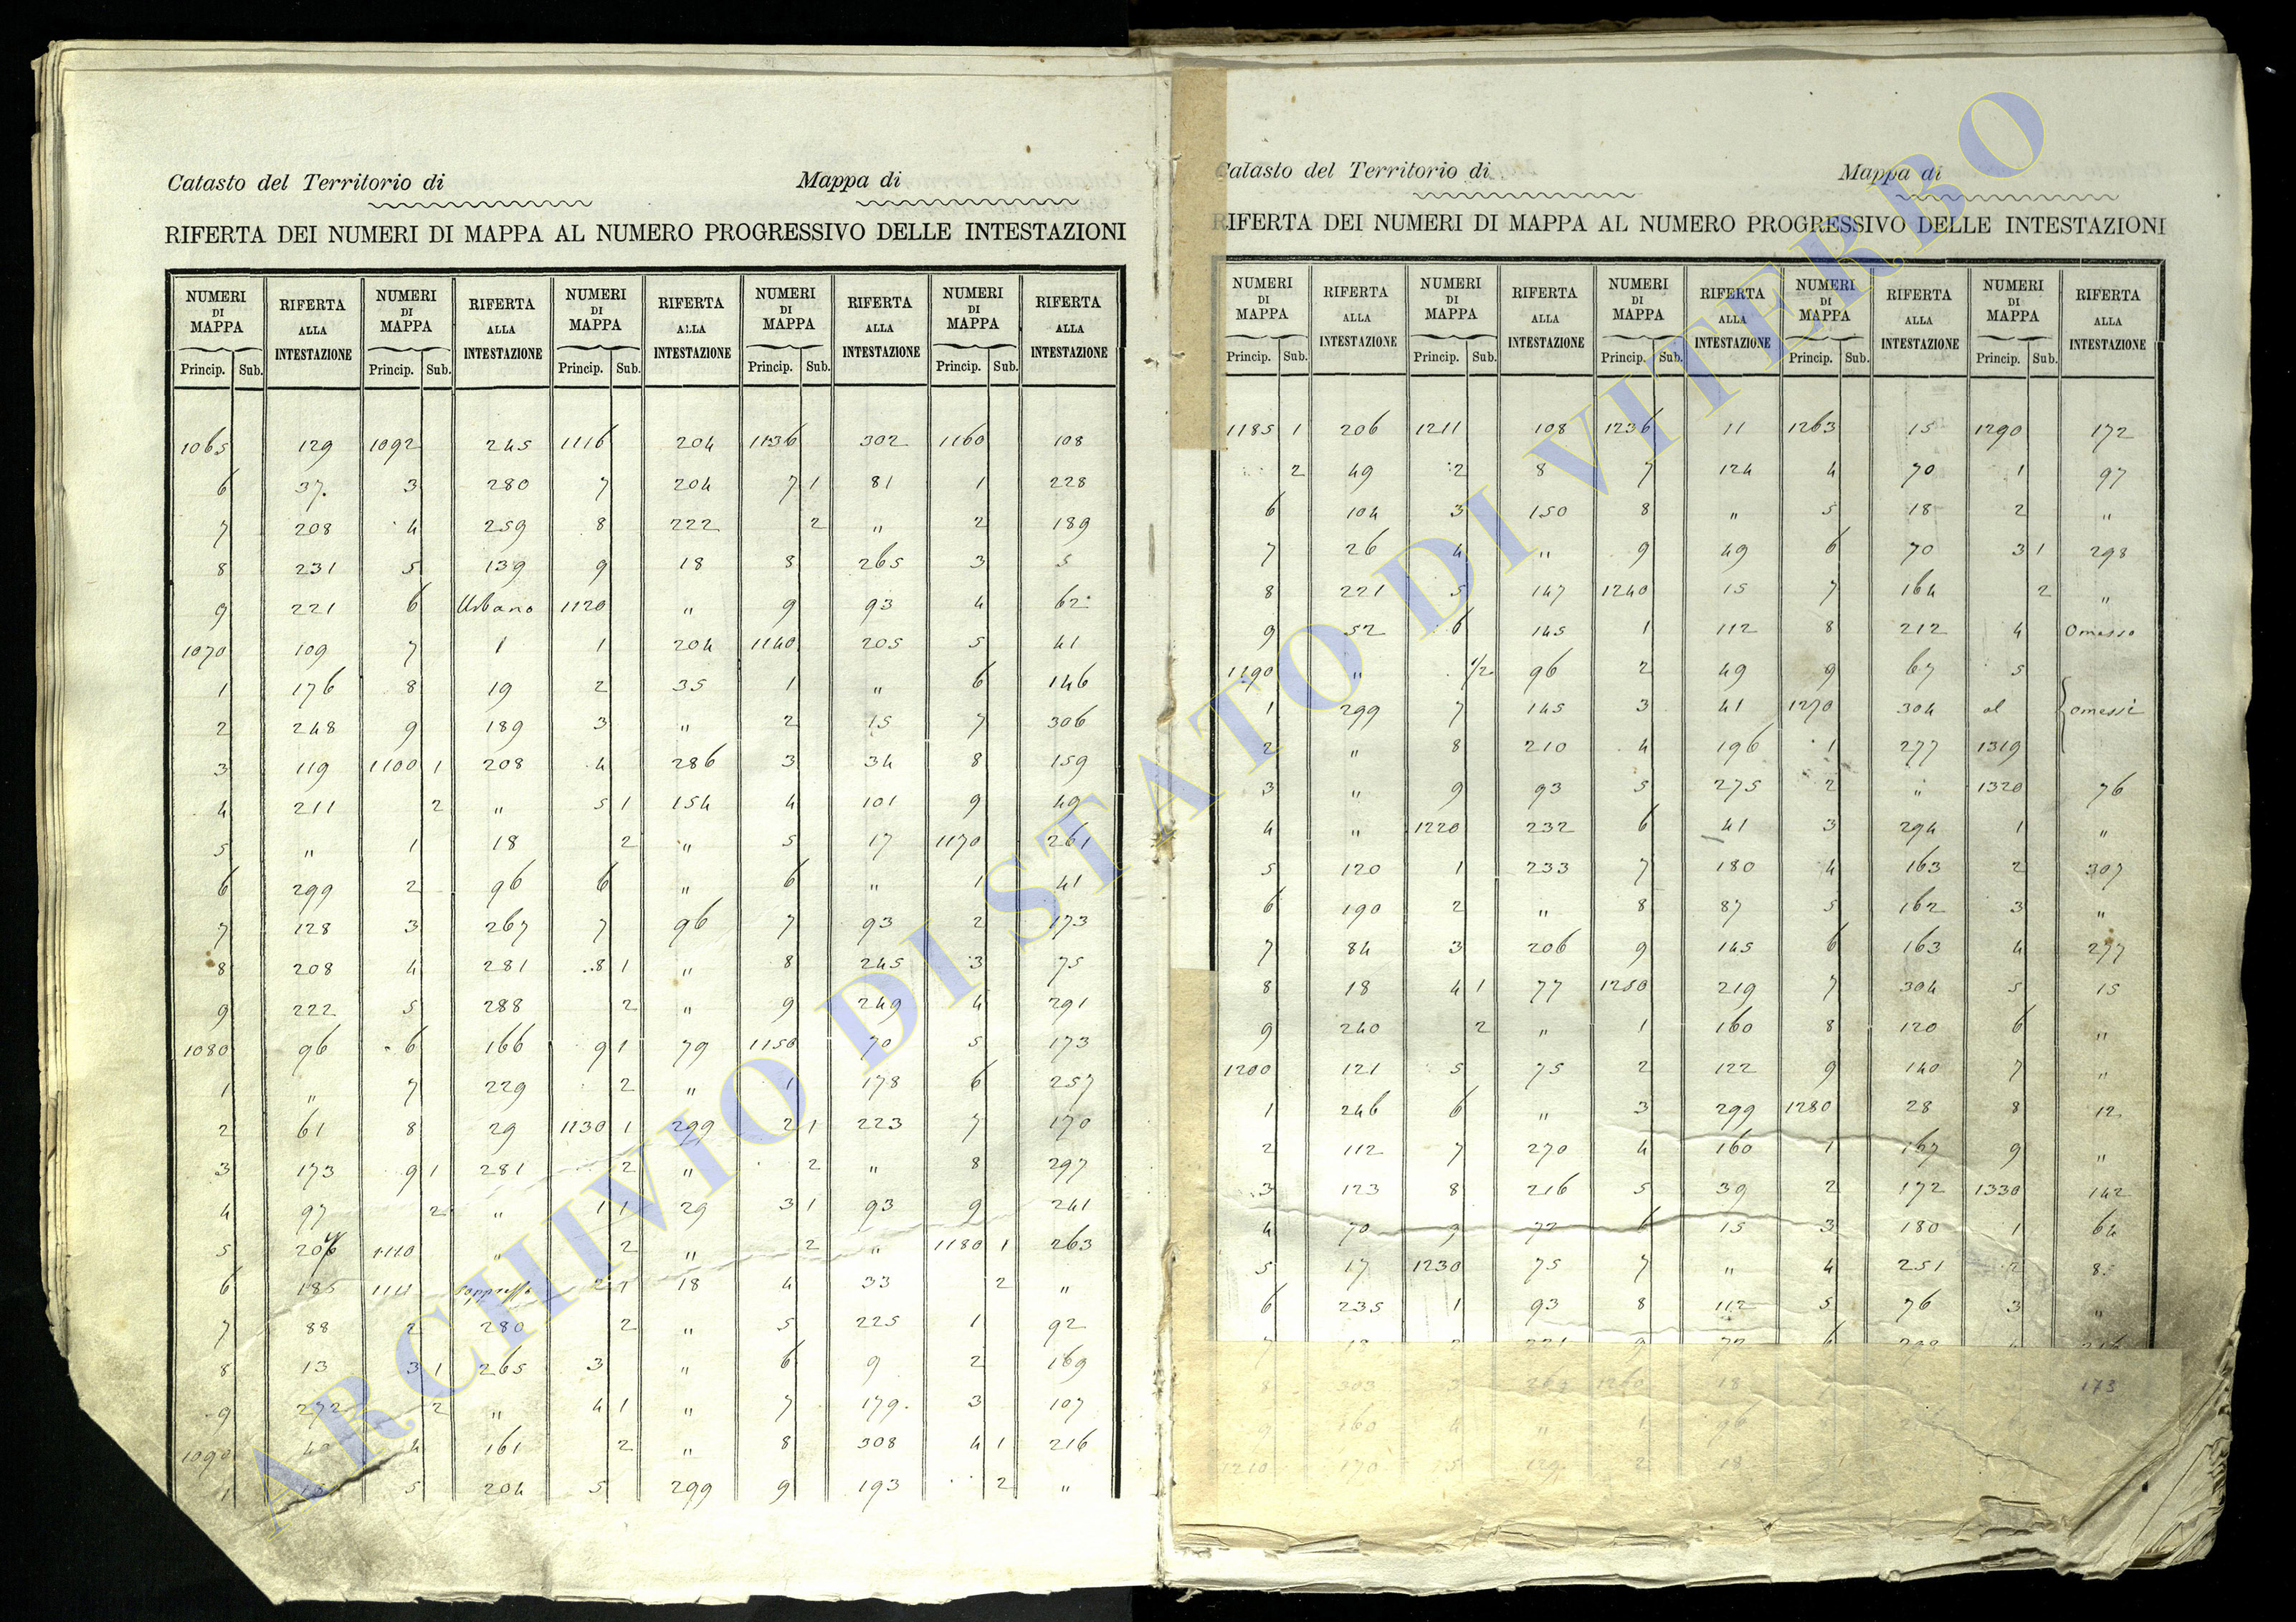 Catasto del Territorio di Mappa di
RIFERTA DEI NUMERI DI MAPPA AL NUMERO PROGRESSIVO DELLE INTESTAZIONI
NUMERI DI MAPPA RIFERTA ALLA INTESTAZIONE NUMERI DI MAPPA RIFERTA ALLA INTESTAZIONE NUMERI DI MAPPA RIFERTA ALLA INTESTAZIONE NUMERI DI MAPPA RIFERTA ALLA INTESTAZIONE NUMERI DI MAPPA RIFERTA ALLA INTESTAZIONE
Princip. Sub. Princip. Sub. Princip. Sub. Princip. Sub. Princip. Sub.
1065 129 1092 245 1116 204 1136 302 1160 108
6 37 3 280 7 204 7 1 81 1 228
7 208 4 259 8 222 2 " 2 189
8 231 5 139 9 18 8 265 3 5
9 221 6 Urbano 1120 " 9 93 4 62
1070 109 7 1 1 204 1140 205 5 41
1 176 8 19 2 35 1 " 6 146
2 248 9 189 3 " 2 15 7 306
3 119 1100 1 208 4 286 3 34 8 159
4 211 2 " 5 1 154 4 101 9 49
5 " 1 18 2 " 5 17 1170 261
6 299 2 96 6 " 6 " 1 41
7 128 3 267 7 96 7 93 2 173
8 208 4 281 8 1 " 8 245 3 75
9 222 5 288 2 " 9 249 4 291
1080 96 6 166 9 1 79 1150 70 5 173
1 " 7 229 2 " 1 178 6 257
2 61 8 29 1130 1 299 2 1 223 7 170
3 173 9 1 281 2 " 2 " 8 297
4 97 2 " 1 1 29 3 1 93 9 241
5 1110 " 2 " 2 " 1180 1 263
6 185 1111 Soppresso 2 1 18 4 33 2 "
7 88 2 280 2 " 5 225 1 92
8 13 3 1 265 3 " 6 9 2 169
9 272 2 " 4 1 " 7 179 3 107
1090 40 4 161 2 " 8 308 4 1 216
1 5 204 5 299 9 193 2 "
Catasto del Territorio di Mappa di
RIFERTA DEI NUMERI DI MAPPA AL NUMERO PROGRESSIVO DELLE INTESTAZIONI
NUMERI DI MAPPA RIFERTA ALLA INTESTAZIONE NUMERI DI MAPPA RIFERTA ALLA INTESTAZIONE NUMERI DI MAPPA RIFERTA ALLA INTESTAZIONE NUMERI DI MAPPA RIFERTA ALLA INTESTAZIONE NUMERI DI MAPPA RIFERTA ALLA INTESTAZIONE
Princip. Sub. Princip. Sub. Princip. Sub. Princip. Sub. Princip. Sub.
1185 1 206 1211 108 1236 11 1263 15 1290 172
2 49 2 8 7 124 4 70 1 97
6 104 3 150 8 " 5 18 2 "
7 26 4 " 9 49 6 70 3 1 298
8 221 5 147 1240 15 7 164 2 "
9 52 6 145 1 112 8 212 4 Omesso
1190 " 1/2 96 2 49 9 67 5
1 299 7 145 3 41 1270 304 al omessi
2 " 8 210 4 196 1 277 1319
3 " 9 93 5 275 2 " 1320 76
4 " 1220 232 6 41 3 294 1 "
5 120 1 233 7 180 4 163 2 307
6 190 2 " 8 87 5 162 3 "
7 84 3 206 9 145 6 163 4 277
8 18 4 1 77 1250 219 7 304 5 15
9 240 2 " 1 160 8 120 6 "
1200 121 5 75 2 122 9 140 7 "
1 246 6 " 3 299 1280 28 8 12
2 112 7 270 4 160 1 167 9 "
3 123 8 216 5 39 2 172 1330 142
4 70 9 72 6 15 3 180 1 64
5 17 1230 75 7 " 4 251 2 8
6 235 1 93 8 112 5 76 3 "
7 2 221 9 72 6
8 303 3 269 1260 18 173
9 160 4 " 1 96
1210 170 5 129 2 18
ARCHIVIO DI STATO DI VITERBO